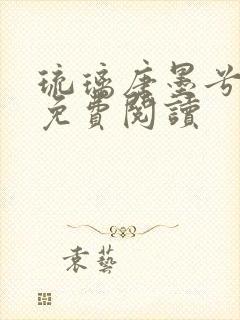 琉璃唐墨兮
免費閱讀
袁藝